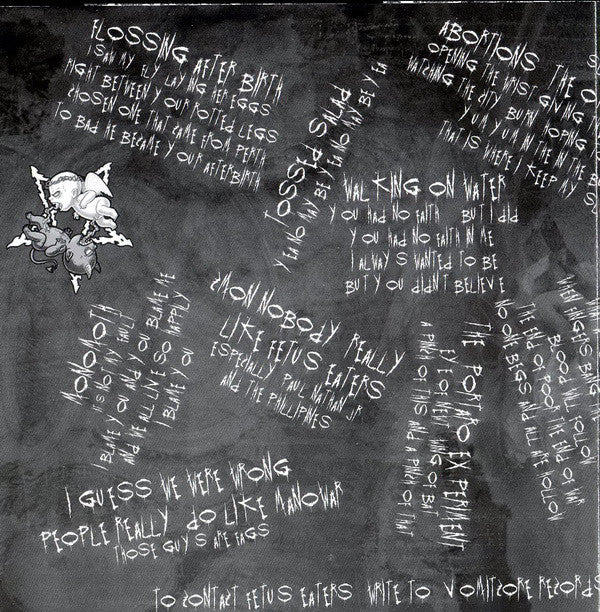 FLOSSING AFTER BIRTH
I SAW MY FLY LAYING HER EGGS
RIGHT BETWEEN YOUR ROTTED LEGS
CHOSEN ONE THAT CAME FROM PERTH
TO BAD HE BECAME YOUR AFTERBIRTH
TOSSED SALAD
YEA NO MAY BE YEA NO MAY BE YEA
ABORTIONS THE O
OPENING THE WRIST GIVING
WATCHING THE CITY BURN HOPING
YUM YUM IN THE IN THE B
THAT IS WHERE I KEEP MY S
WALKING ON WATER
YOU HAD NO FAITH BUT I DID
YOU HAD NO FAITH IN ME
I ALWAYS WANTED TO BE
BUT YOU DIDN'T BELIEVE
MONOMOTH
IT'S NOT MY FAULT
I BLAME YOU AND YOU BLAME ME
AND WE ALL LIVE SO HAPPILY
I BLAME YOU
NOBODY REALLY
LIKE FETUS EATERS
ESPECIALLY PAUL NATHAN JR
AND THE PHILLIPINES
THE PORTARO EXPERIMENT
EYE OF NEWT WING OF BAT
A PINCH OF THIS AND A PINCH OF THAT
WHEN FINGERS BANG
BLOOD WILL FOLLOW
THE END OF POOR THE END OF WAR
NO ONE BEGS AND ALL ARE HOLLOW
I GUESS WE WERE WRONG
PEOPLE REALLY DO LIKE MANOWAR
THOSE GUYS ARE FAGS
TO CONTACT FETUS EATERS WRITE TO VOMITSCORE RECORDS